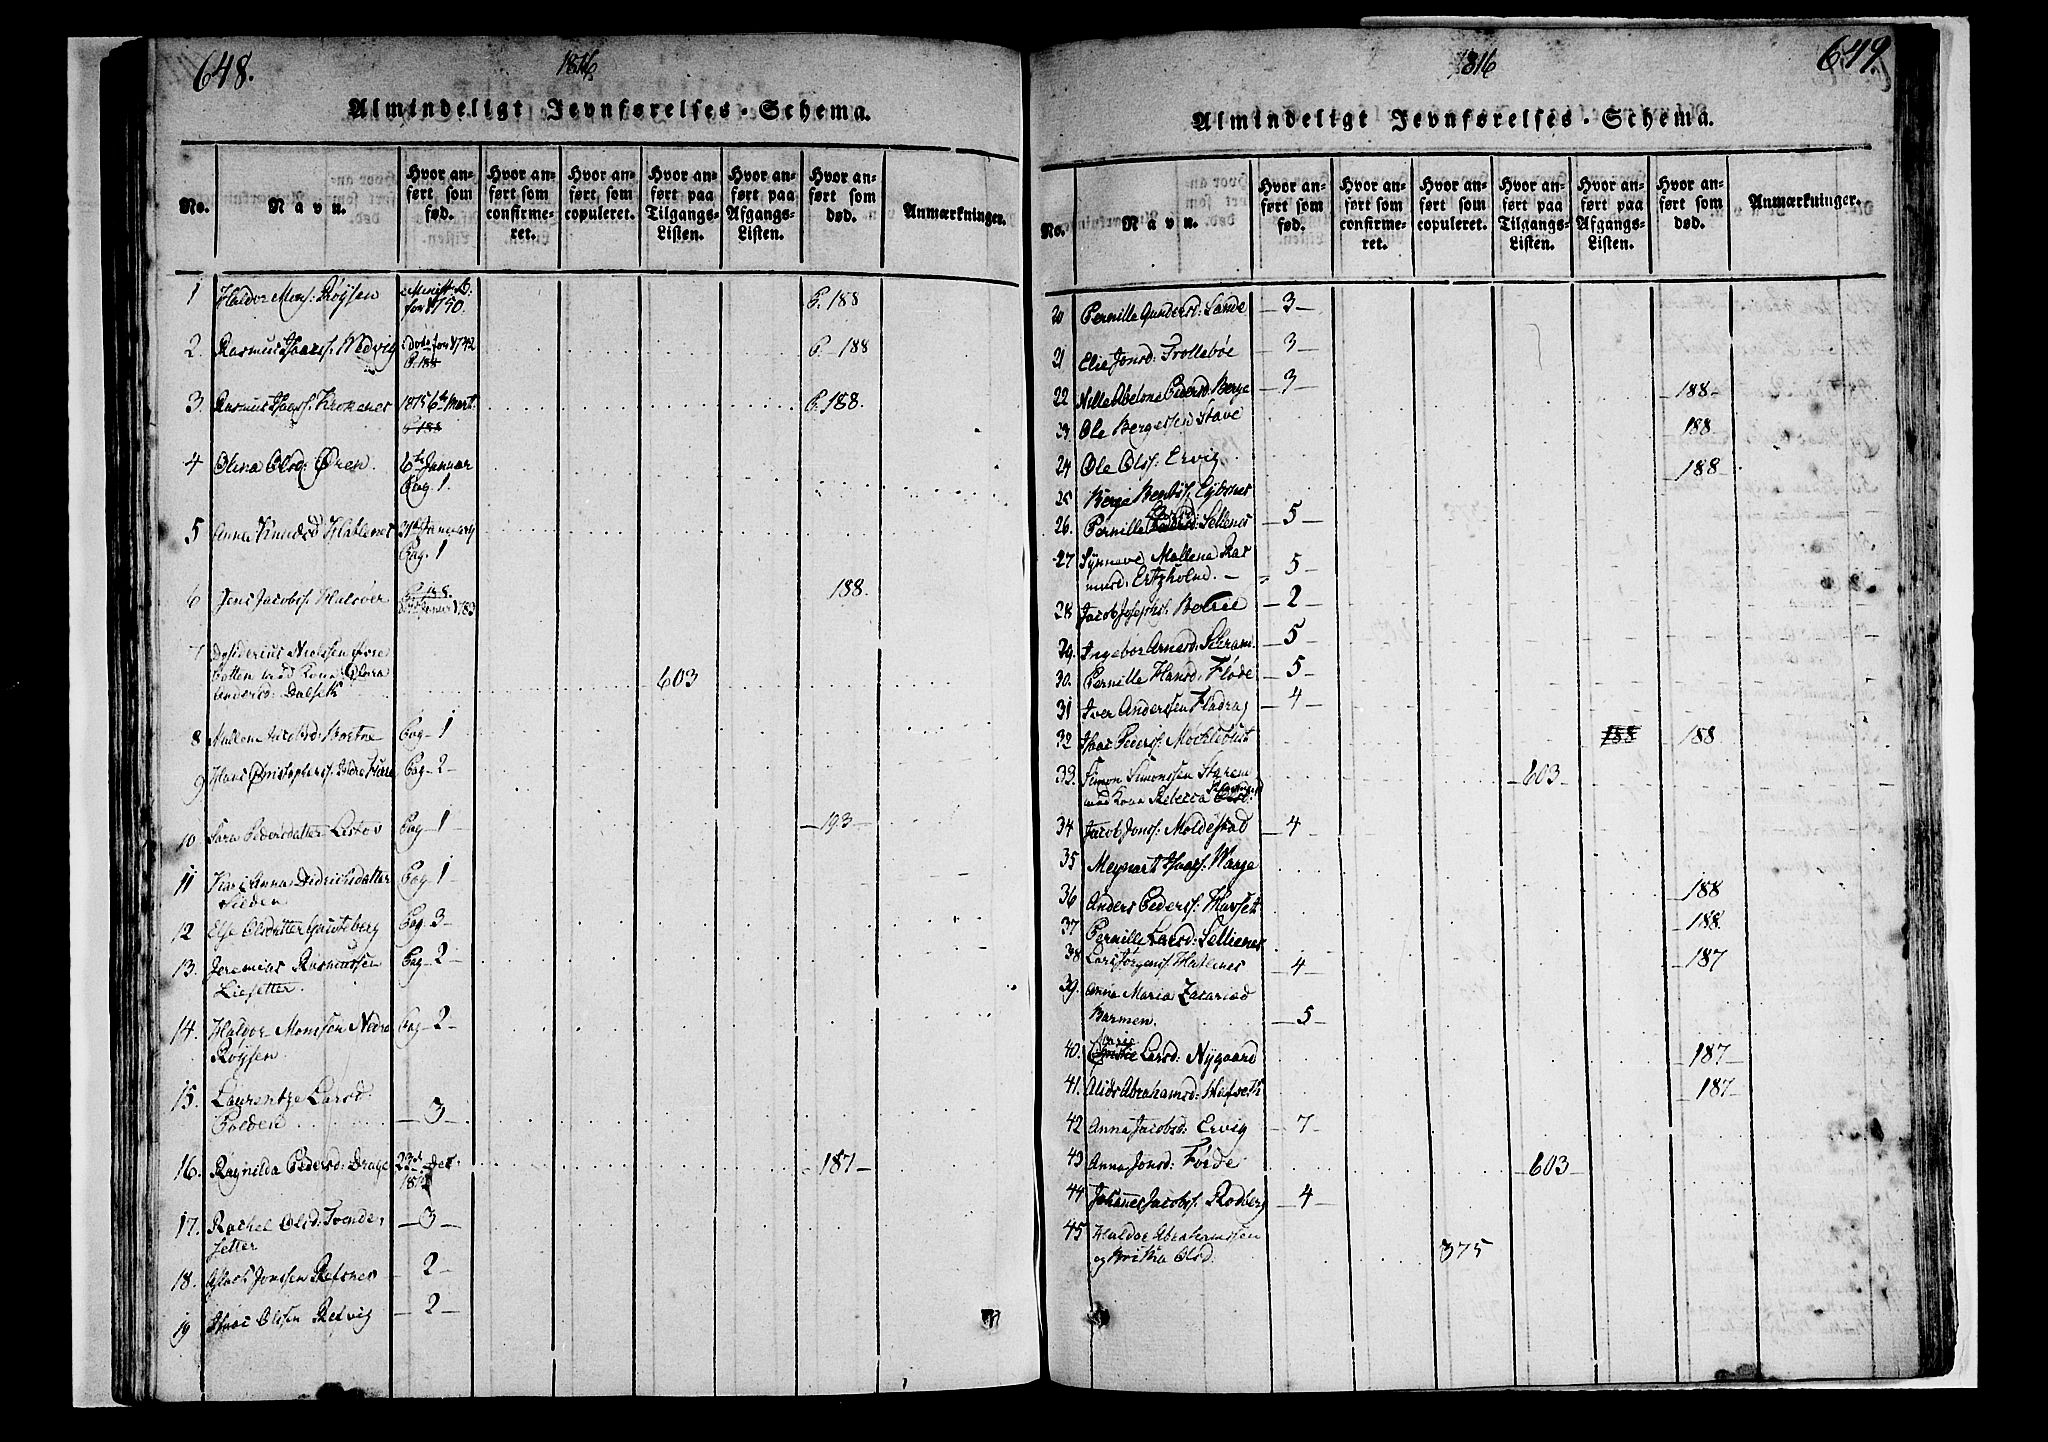 648.
1816
Almindeligt Jevnførelses-Schema.
No.
Navn.
Hvor anført som fød.
Hvor anført som confirmeret.
Hvor anført som copuleret.
Hvor anført paa Tilgangs-Listen.
Hvor anført paa Afgangs-Listen.
Hvor anført som død.
Anmærkninger.
1 Haldor Mons: Røysen for 1790. P. 188
2. Rasmus Isaacs. Wedvig for 1742 P. 188 P. 188
3. Rasmus Isaacs. Krokenes 1815 6te Mart. P 188 P. 188.
4 Olena Olsd: Øren. 6te Januar Pag. 1.
5 Anne Knudsd Hatlenes 31te January Pag. 1
6 Jens Jacobs. Husøer P. 188. 1783 188.
7 Desiderius Nielssen
Botten med Kone
Andersd: Dalseth 603
8 Mallene Jacobsd: Pag- 1
9 Hans Christophers. Indre Pag- 2-
10. Sara Pedersdatter Pag- 1 -193-
11 Kari Anna Didrichsdatter Pag- 1
Silden
12 Else Olsdatter Pag- 3-
13. Jeremias Rasmussen Pag- 2-
Liesetter.
14. Haldor Monssøn Nedre Pag- 2-
Røysen.
15. Laurentze Larsd.
-3-
16. Ragnilda Pedersd: Drage 23d Dec. 1812 -187-
17. Rachel Olsd: -3-
setter
18. Jonssen Refsnes -2-
19 Isaac Olssen Refvig -2-
649
1816
Almindeligt Jevnførelses-Schema.
No.
Navn.
Hvor anført som fød.
Hvor anført som confirmeret.
Hvor anført som copuleret.
Hvor anført paa Tilgangs-Listen.
Hvor anført paa Afgangs-Listen.
Hvor anført som død.
Anmærkninger.
20 Pernille Gundersd: Sande -3-
21 Elie Jonsd: Trollebøe -3
22 Nille Abelone Pedersd: Berge -3 188-
23. Ole Bergessen Stave 188
24 Ole Olss. Ervig 188-
25 Berge
26. Pernille Sellenes -5-
27 Synneve Mallena Ras
musd. Ertzholm. - 5-
28. Jacob Josephs. -2-
29. Ingebor Arnesd: -5-
30. Pernille Hansd. Fløde -5-
31 Iver Anderssen Fladrag -4
32 Isac Peders. Mochlebust 188 188
33. Simon Simonssen
med Kone Rebecca -603
34 Jacob Jonss. Moldestad -4
35 Meynart Isaacs. Waage
36 Anders Peders. 188
188.
37 Pernille Larsd: Sellienes
38 Lars Jørgens. Hatlenes -4 -187
39. Anne Maria Zacariæd
Barmen. -5-
40. Larsd: Nygaard -187-
41. Alids Abrahamsd: -187-
42 Anna Jacobsd: Ervig -7-
43 Anna Jonsd: Førde -603
44 Johannes Jacobs. Rødberg -4
45 Haldor Abrahamssen
og Brithe Olsd. 375